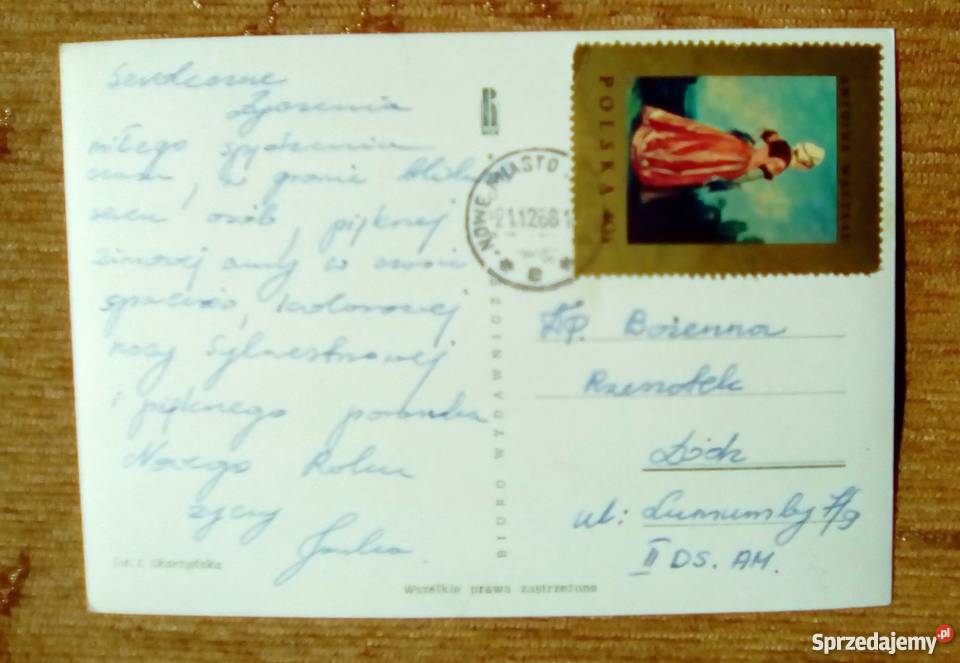 Serdeczne
Życzenia
miłego spędzenia
czasu, w gronie bliskich
sercu osób, pięknej
zimowej aury w czasie
kolorowej
nocy Sylwestrowej
i pięknego poranka
Nowego Roku
życzy
fot. I. Skarżyńska
BIURO WYDAWNICZE
Wszelkie prawa zastrzeżone
NOWE MIASTO
21.12.68
POLSKA
Dp. Bożenna
Rzenotek
Łódź
ul: Lumumby 7/9
II DS. AM.
Sprzedajemy.pl